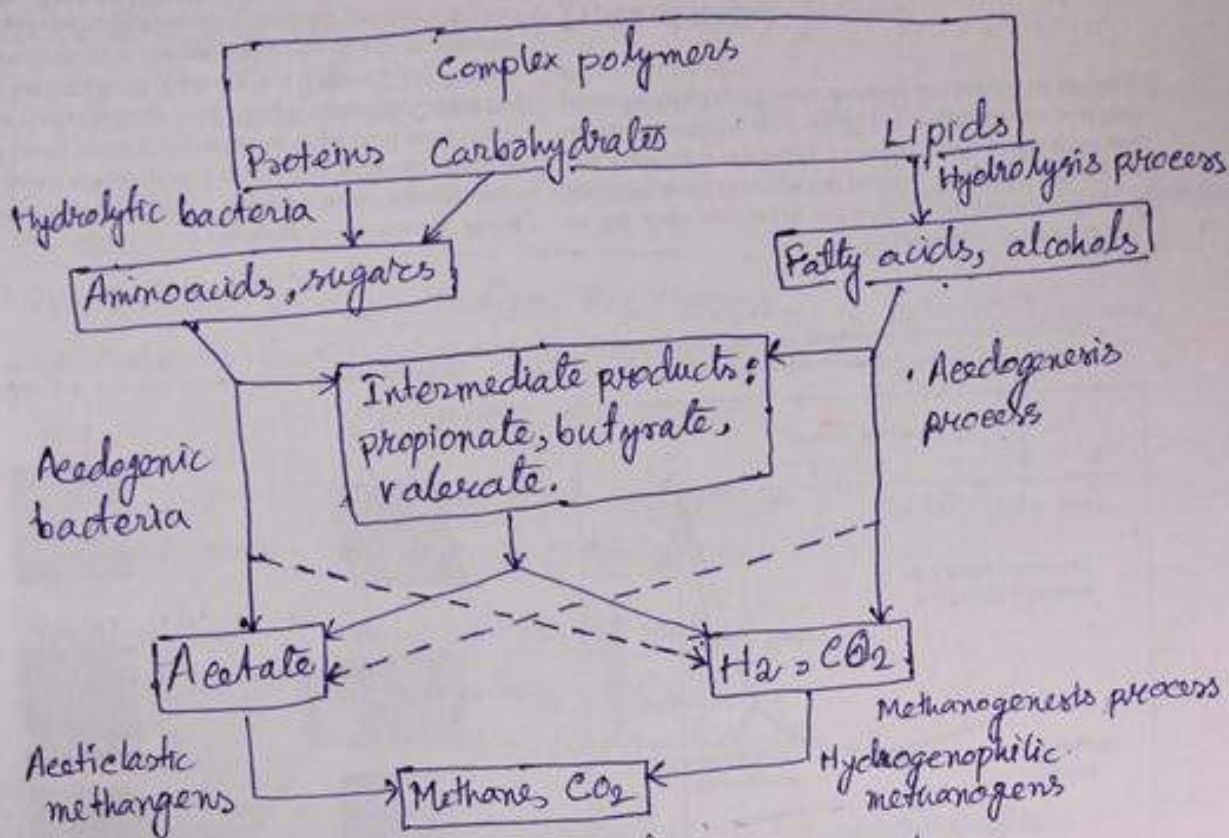 Complex polymers
Proteins Carbohydrates Lipids
Hydrolytic bacteria
Hydrolysis process
Aminoacids, sugars
Fatty acids, alcohols
Intermediate products:
propionate, butyrate,
valerate.
Acedogenic
bacteria
Acedogenesis
process
Acetate
H2, CO2
Methanogenesis process
Aceticlastic
methangens
Methane, CO2
Hydrogenophilic
methanogens